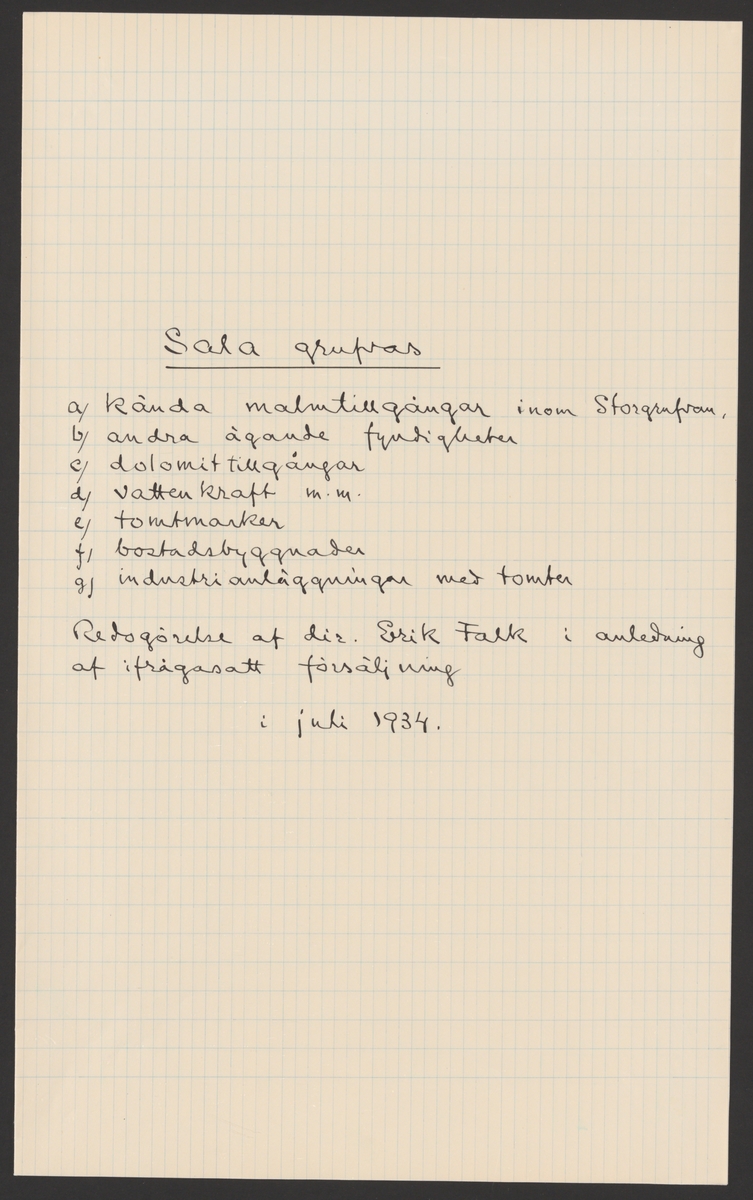 Sala grufvas
a/ kända malmtillgångar inom Storgrufvan,
b/ andra ägande fyndigheter
c/ dolomittillgångar
d/ vattenkraft m.m.
e/ tomtmarker
f/ bostadsbyggnader
g/ industrianläggningar med tomter
Redogörelse af dir. Erik Falk i anledning
af ifrågasatt försäljning
i juli 1934.